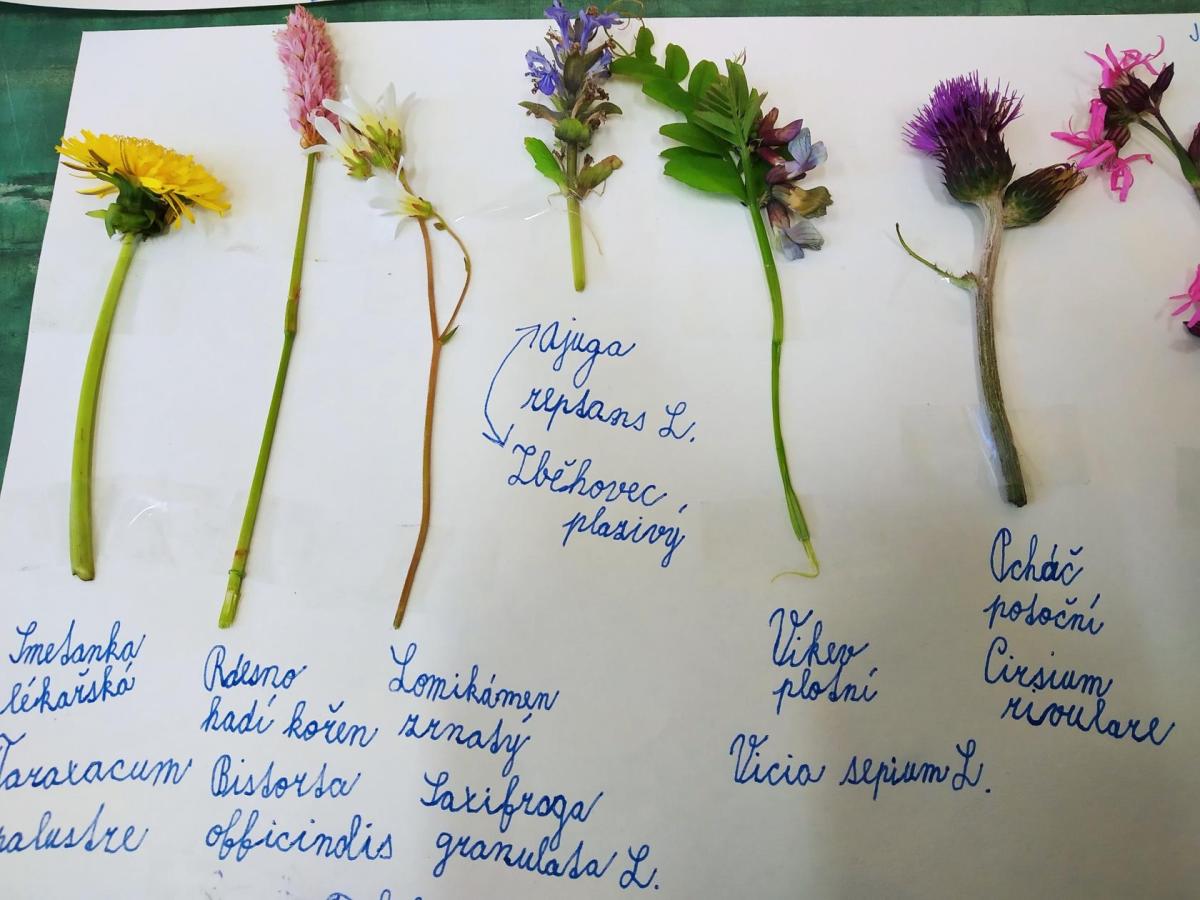 Smetanka
lékařská
Taraxacum
palustre
Rdesno
hadí kořen
Bistorta
officinalis
Lomikámen
zrnatý
Saxifraga
granulata L.
Ajuga
reptans L.
Zběhovec
plazivý
Vikev
plotní
Vicia sepium L.
Pcháč
potoční
Cirsium
rivulare